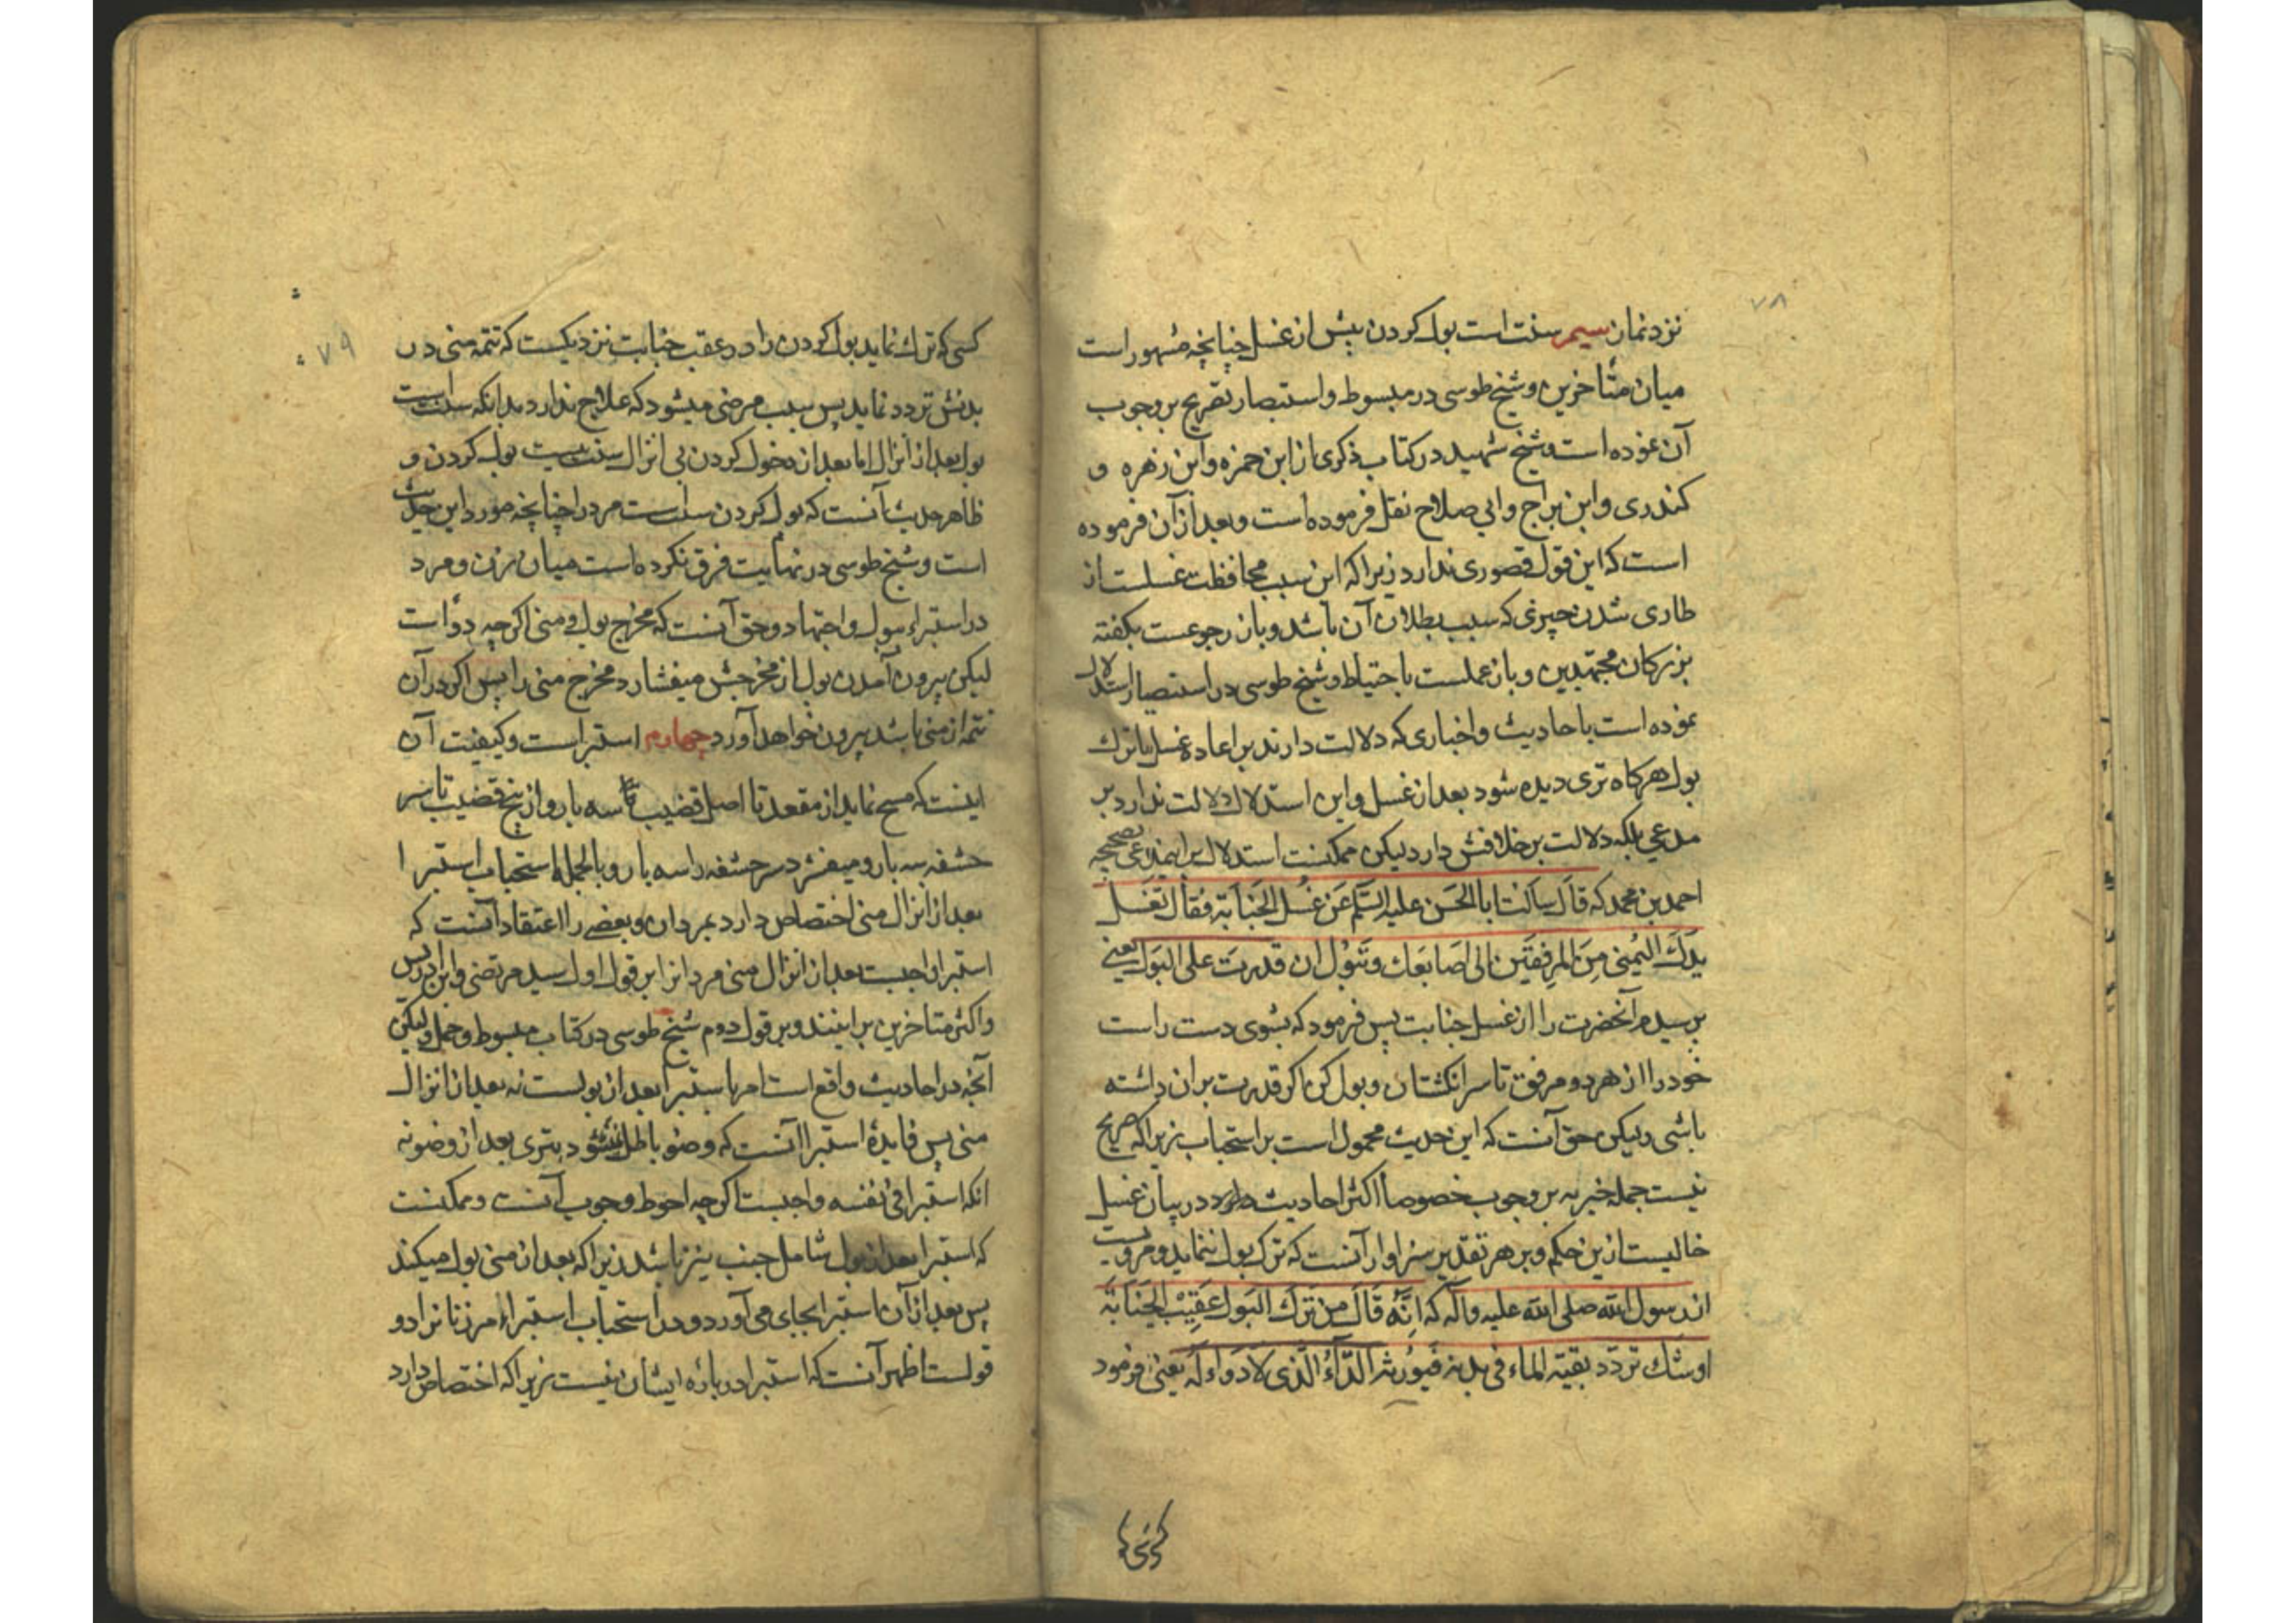 ۷۸
نزد نماز سیم سنت است بول کردن پیش از غسل چنانچه مشهور است
میان متأخرین و شیخ طوسی در مبسوط و استبصار تصریح بر وجوب
آن نموده است و شیخ شهید در کتاب ذکری از ابن حمزه و ابن زهره و
کندری و ابن براج و ابی صلاح نقل فرموده است و بعد از آن فرموده
است که این قول قصوری ندارد زیرا که این سبب محافظت غسلست از
طاری شدن چیزی که سبب بطلان آن باشد و باز رجوعست بگفته
بزرکان مجتهدین و باز عملست باحتیاط و شیخ طوسی در استبصار استدلال
نموده است باحادیث و اخباری که دلالت دارند بر اعاده غسل با ترک
بول هرکاه تری دیده شود بعد از غسل و این استدلال دلالت ندارد بر
مدعی بلکه دلالت بر خلافش دارد لیکن ممکنست استدلال بر اینمدعی بصحیحه
احمد بن محمد که قال سالت ابا الحَسَن علیه السّلم عَن غُسل الجَنابَة فقال تَغسل
یدَکَ الیُمنی مِنَ المِرفقَین الی اصَابعَک وتَبوُل ان قدرت علی البَول یعنی
پرسیدم آنحضرت را از غسل جنابت پس فرمود که بشوی دست راست
خود را از هر دو مرفق تا سر انکشتان و بول کن اکر قدرت بران داشته
باشی ولیکن حق آنست که این حدیث محمول است بر استحباب زیرا که صریح
نیست جمله خبریه بر وجوب خصوصاً اکثر احادیث وارد در بیان غسل
خالیست ازین حکم و بر هر تقدیر سزاوار آنست که ترک بول ننماید و مرویست
از رسول الله صلی الله علیه وآله که اِنَّه قَالَ من تَرکَ البَول عَقِیبَ الجَنَابَة
اوشک تردّد بقیة الماء فی بدنه فیُورثه الدّاءُ الّذی لا دَواء لَه یعنی فرمود
کسی که
۷۹
کسی که ترک نماید بول کردن را در عقب جنابت نزدیکست که تتمه منی در
بدنش تردد نماید پس سبب مرضی میشود که علاج ندارد بدانکه سنت است
بول بعد از انزال اما بعد از دخول کردن بی انزال سنت نیست بول کردن و
ظاهر حدیث آنست که بول کردن سنت است مرد را چنانچه مورد این حدیث
است و شیخ طوسی در نهایت فرق نکرده است میان زن و مرد
در استبراء ببول و اجتهاد و حق آنست که مخرج بول و منی اکرچه دو است
لیکن بیرون آمدن بول از مخرجش میفشارد مخرج منی را پس اکر در آن
تتمه از منی باشد بیرون خواهد آورد چهارم استبراست و کیفیت آن
اینست که مسح نماید از مقعد تا اصل قضیب سه بار و از بیخ قضیب تا سر
حشفه سه بار و میفشرد سر حشفه را سه بار و بالجمله استحباب استبرا
بعد از انزال منی اختصاص دارد بمردان و بعضی را اعتقاد آنست که
استبرا واجبست بعد از انزال منی مرد را بر قول اول سید مرتضی و ابن ادریس
و اکثر متاخرین برینند و بر قول دوم شیخ طوسی در کتاب مبسوط و جمل ولیکن
آنچه در احادیث واقع است امر باستبرا بعد از بولست نه بعد از انزال
منی پس فایدهٔ استبرا آنست که وضو باطل نشود بتری بعد از وضو نه
انکه استبرا فی نفسه واجبست اکرچه احوط وجوب آنست و ممکنست
که استبرا بعد از بول شامل جنب نیز باشد زیرا که بعد از منی بول میکند
پس بعد از آن استبرا بجای می آورد و در استحباب استبراء مر زنانرا دو
قولست اظهر آنست که استبرا در بارهٔ ایشان نیست زیرا که اختصاص دارد